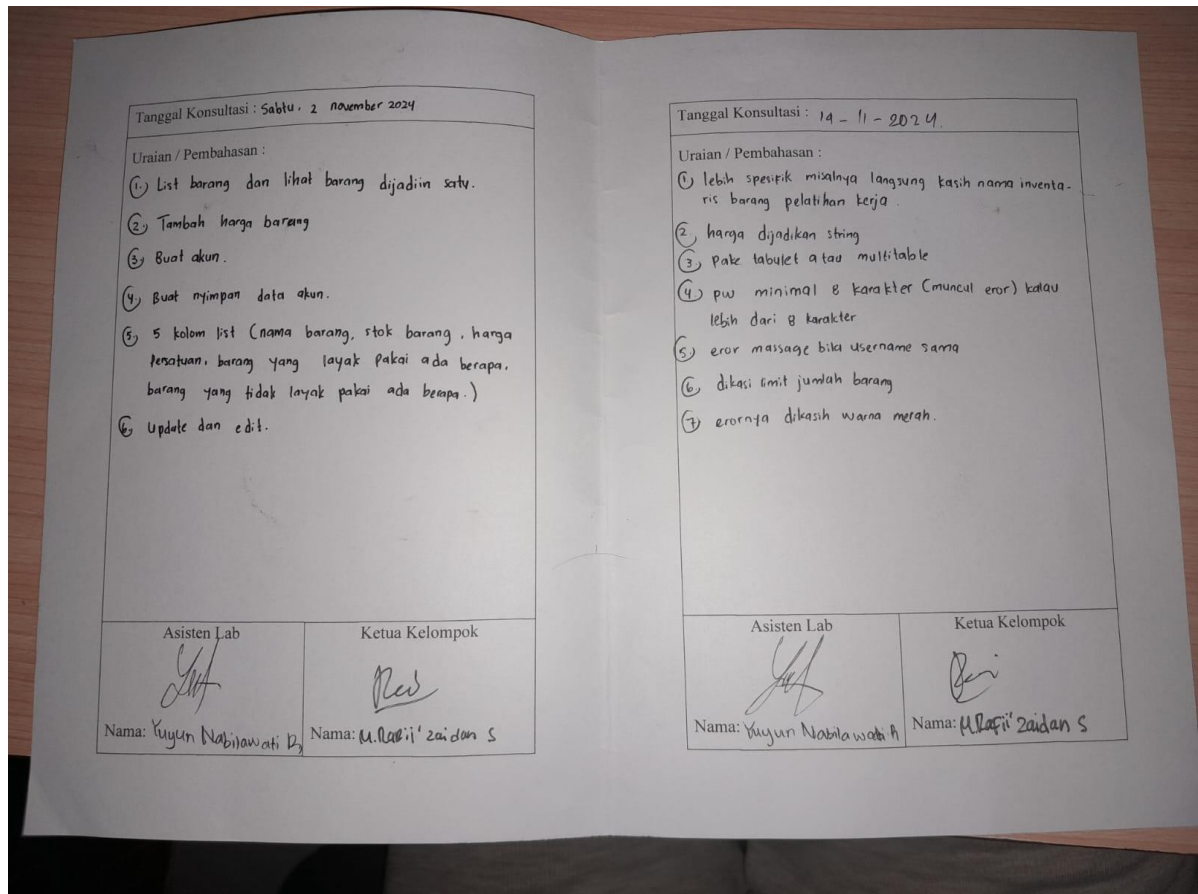 Tanggal Konsultasi : Sabtu, 2 november 2024
Uraian / Pembahasan :
1. List barang dan lihat barang dijadiin satu.
2. Tambah harga barang
3. Buat akun.
4. Buat nyimpan data akun.
5. 5 kolom list (nama barang, stok barang, harga
Persatuan, barang yang layak pakai ada berapa,
barang yang tidak layak pakai ada berapa.)
6. Update dan edit.
Asisten Lab
Ketua Kelompok
Nama: Yuyun Nabilawati
Nama: M.Rafii' zaidan S
Tanggal Konsultasi : 19 - 11 - 2024.
Uraian / Pembahasan :
1. lebih spesifik misalnya langsung kasih nama inventa-
ris barang pelatihan kerja.
2. harga dijadikan string
3. pake tabulet atau multitable
4. pw minimal 8 karakter (muncul eror) kalau
lebih dari 8 karakter
5. eror massage bila username sama
6. dikasi limit jumlah barang
7. erornya dikasih warna merah.
Asisten Lab
Ketua Kelompok
Nama: Yuyun Nabilawati
Nama: M.Rafii' zaidan S